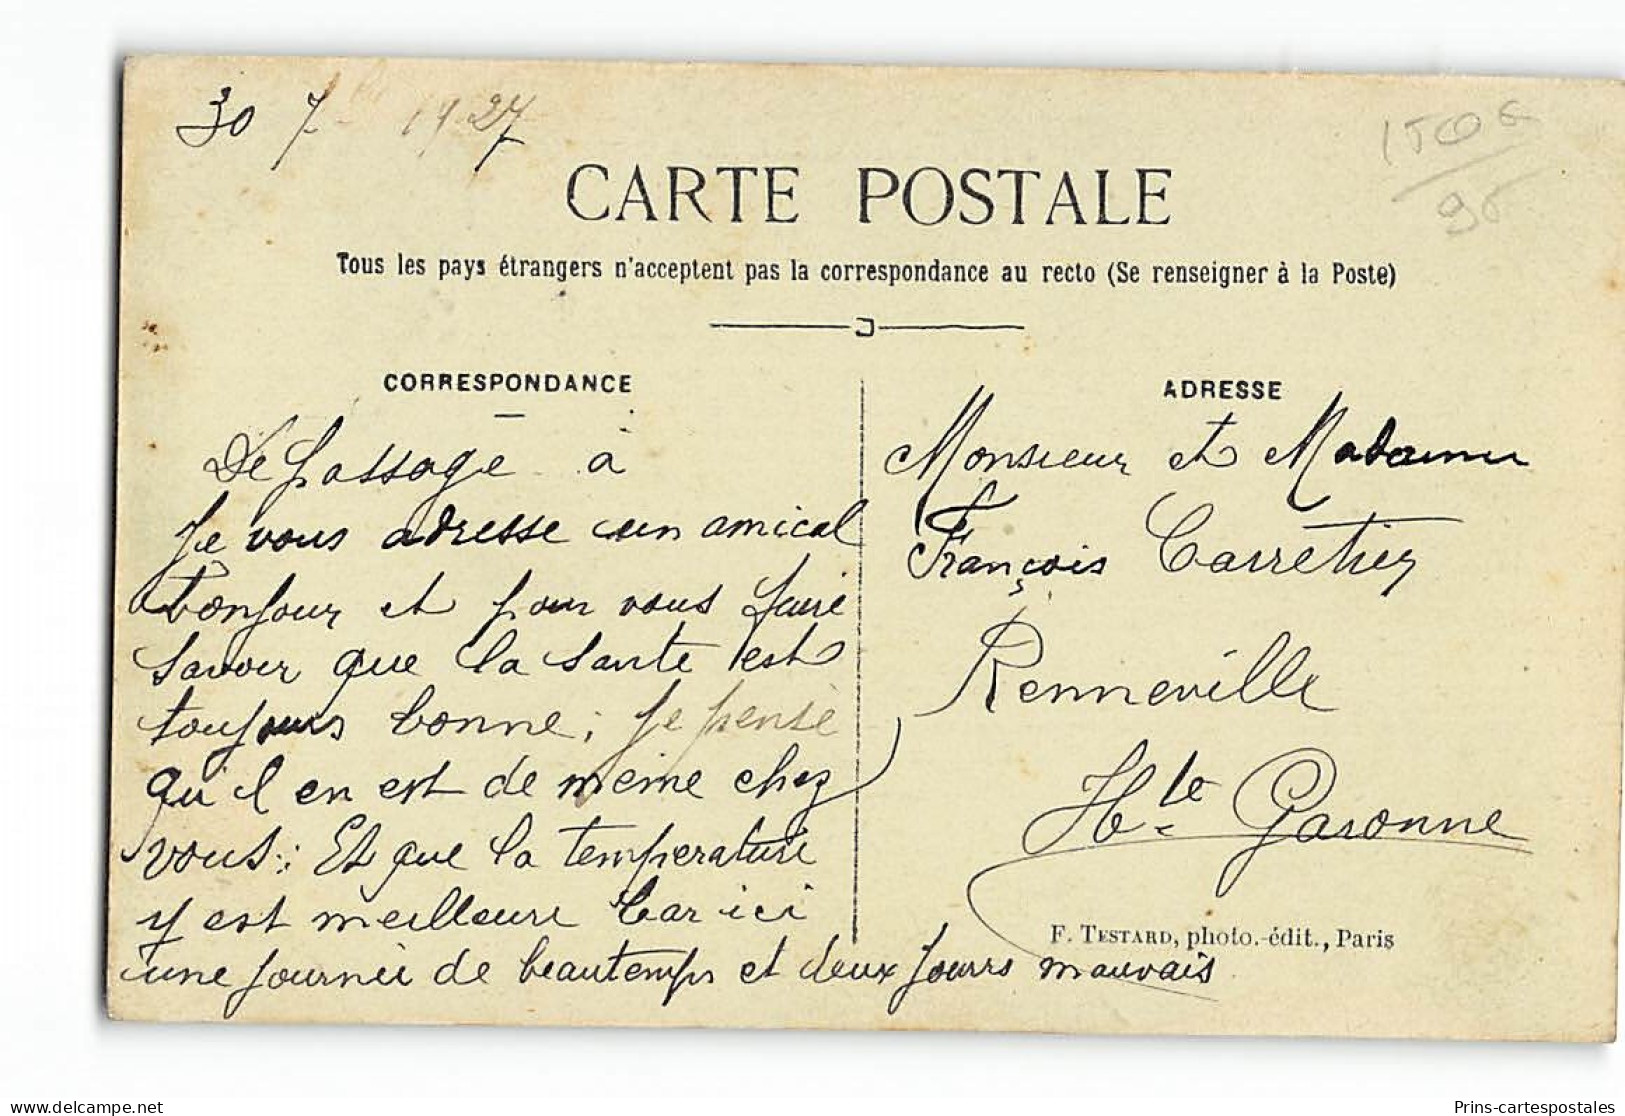 30 7bre 1927
CARTE POSTALE
Tous les pays étrangers n'acceptent pas la correspondance au recto (Se renseigner à la Poste)
CORRESPONDANCE
De passage à
Je vous adresse un amical
bonjour et pour vous faire
savoir que la sante est
toujours bonne; je pense
qu'il en est de meme chez
vous: Et que la temperature
y est meilleure Car ici
une journée de beautemps et deux jours mauvais
ADRESSE
Monsieur et Madame
François Carretier
Renneville
Hte Garonne
F. TESTARD, photo.-édit., Paris
Prins-cartespostales